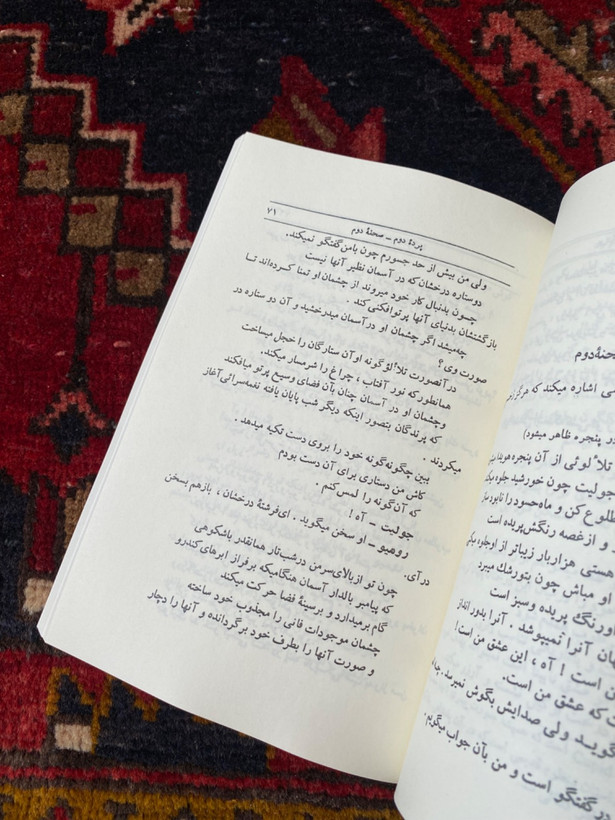 دوم
اشاره میکند که
پنجره ظاهر میشود)
تلاٴلوئی از آن پنجره
جولیت چون خورشید
طلوع کن و ماه حسود را نابود
و از غصه رنگش پریده است
هستی هزار بار زیباتر از او جلوه
او مباش چون بتو رشك میبرد
رنگ پریده و سبز است
آنرا نمیپوشد . آنرا بدور انداز
است ! آه ، این عشق من است !
که عشق من است.
ولی صدایش بگوش نمیرسد.
گفتگو است و من بآن جواب میگویم.
پردهٔ دوم ــ صحنهٔ دوم ۷۱
ولی من بیش از حد جسورم چون بامن گفتگو نمیکند.
دوستاره درخشان که در آسمان نظیر آنها نیست
چون بدنبال کار خود میروند از چشمان او تمنا کرده‌اند تا
بازگشتشان بدنیای آنها پرتوافکنی کند .
چه‌میشد اگر چشمان او در آسمان میدرخشید و آن دو ستاره در
صورت وی ؟
در آنصورت تلاٴلؤ گونه او آن ستارگان را خجل میساخت
همانطور که نور آفتاب ، چراغ را شرمسار میکند.
وچشمان او در آسمان چنان بآن فضای وسیع پرتو میافکند
که پرندگان بتصور اینکه دیگر شب پایان یافته نغمه‌سرائی آغاز
میکردند .
ببین چگونه گونه خود را بروی دست تکیه میدهد .
کاش من دستاری برای آن دست بودم
که آن گونه را لمس کنم .
جولیت ــ آه !
رومیو ــ او سخن میگوید . ای فرشتهٔ درخشان ، بازهم بسخن
در آی.
چون تو از بالای سر من در شب تار همانقدر باشکوهی
که پیامبر بالدار آسمان هنگامیکه بر فراز ابرهای کندرو
گام برمیدارد و برسینهٔ فضا حرکت میکند
چشمان موجودات فانی را مجذوب خود ساخته
و صورت آنها را بطرف خود برگردانده و آنها را دچار